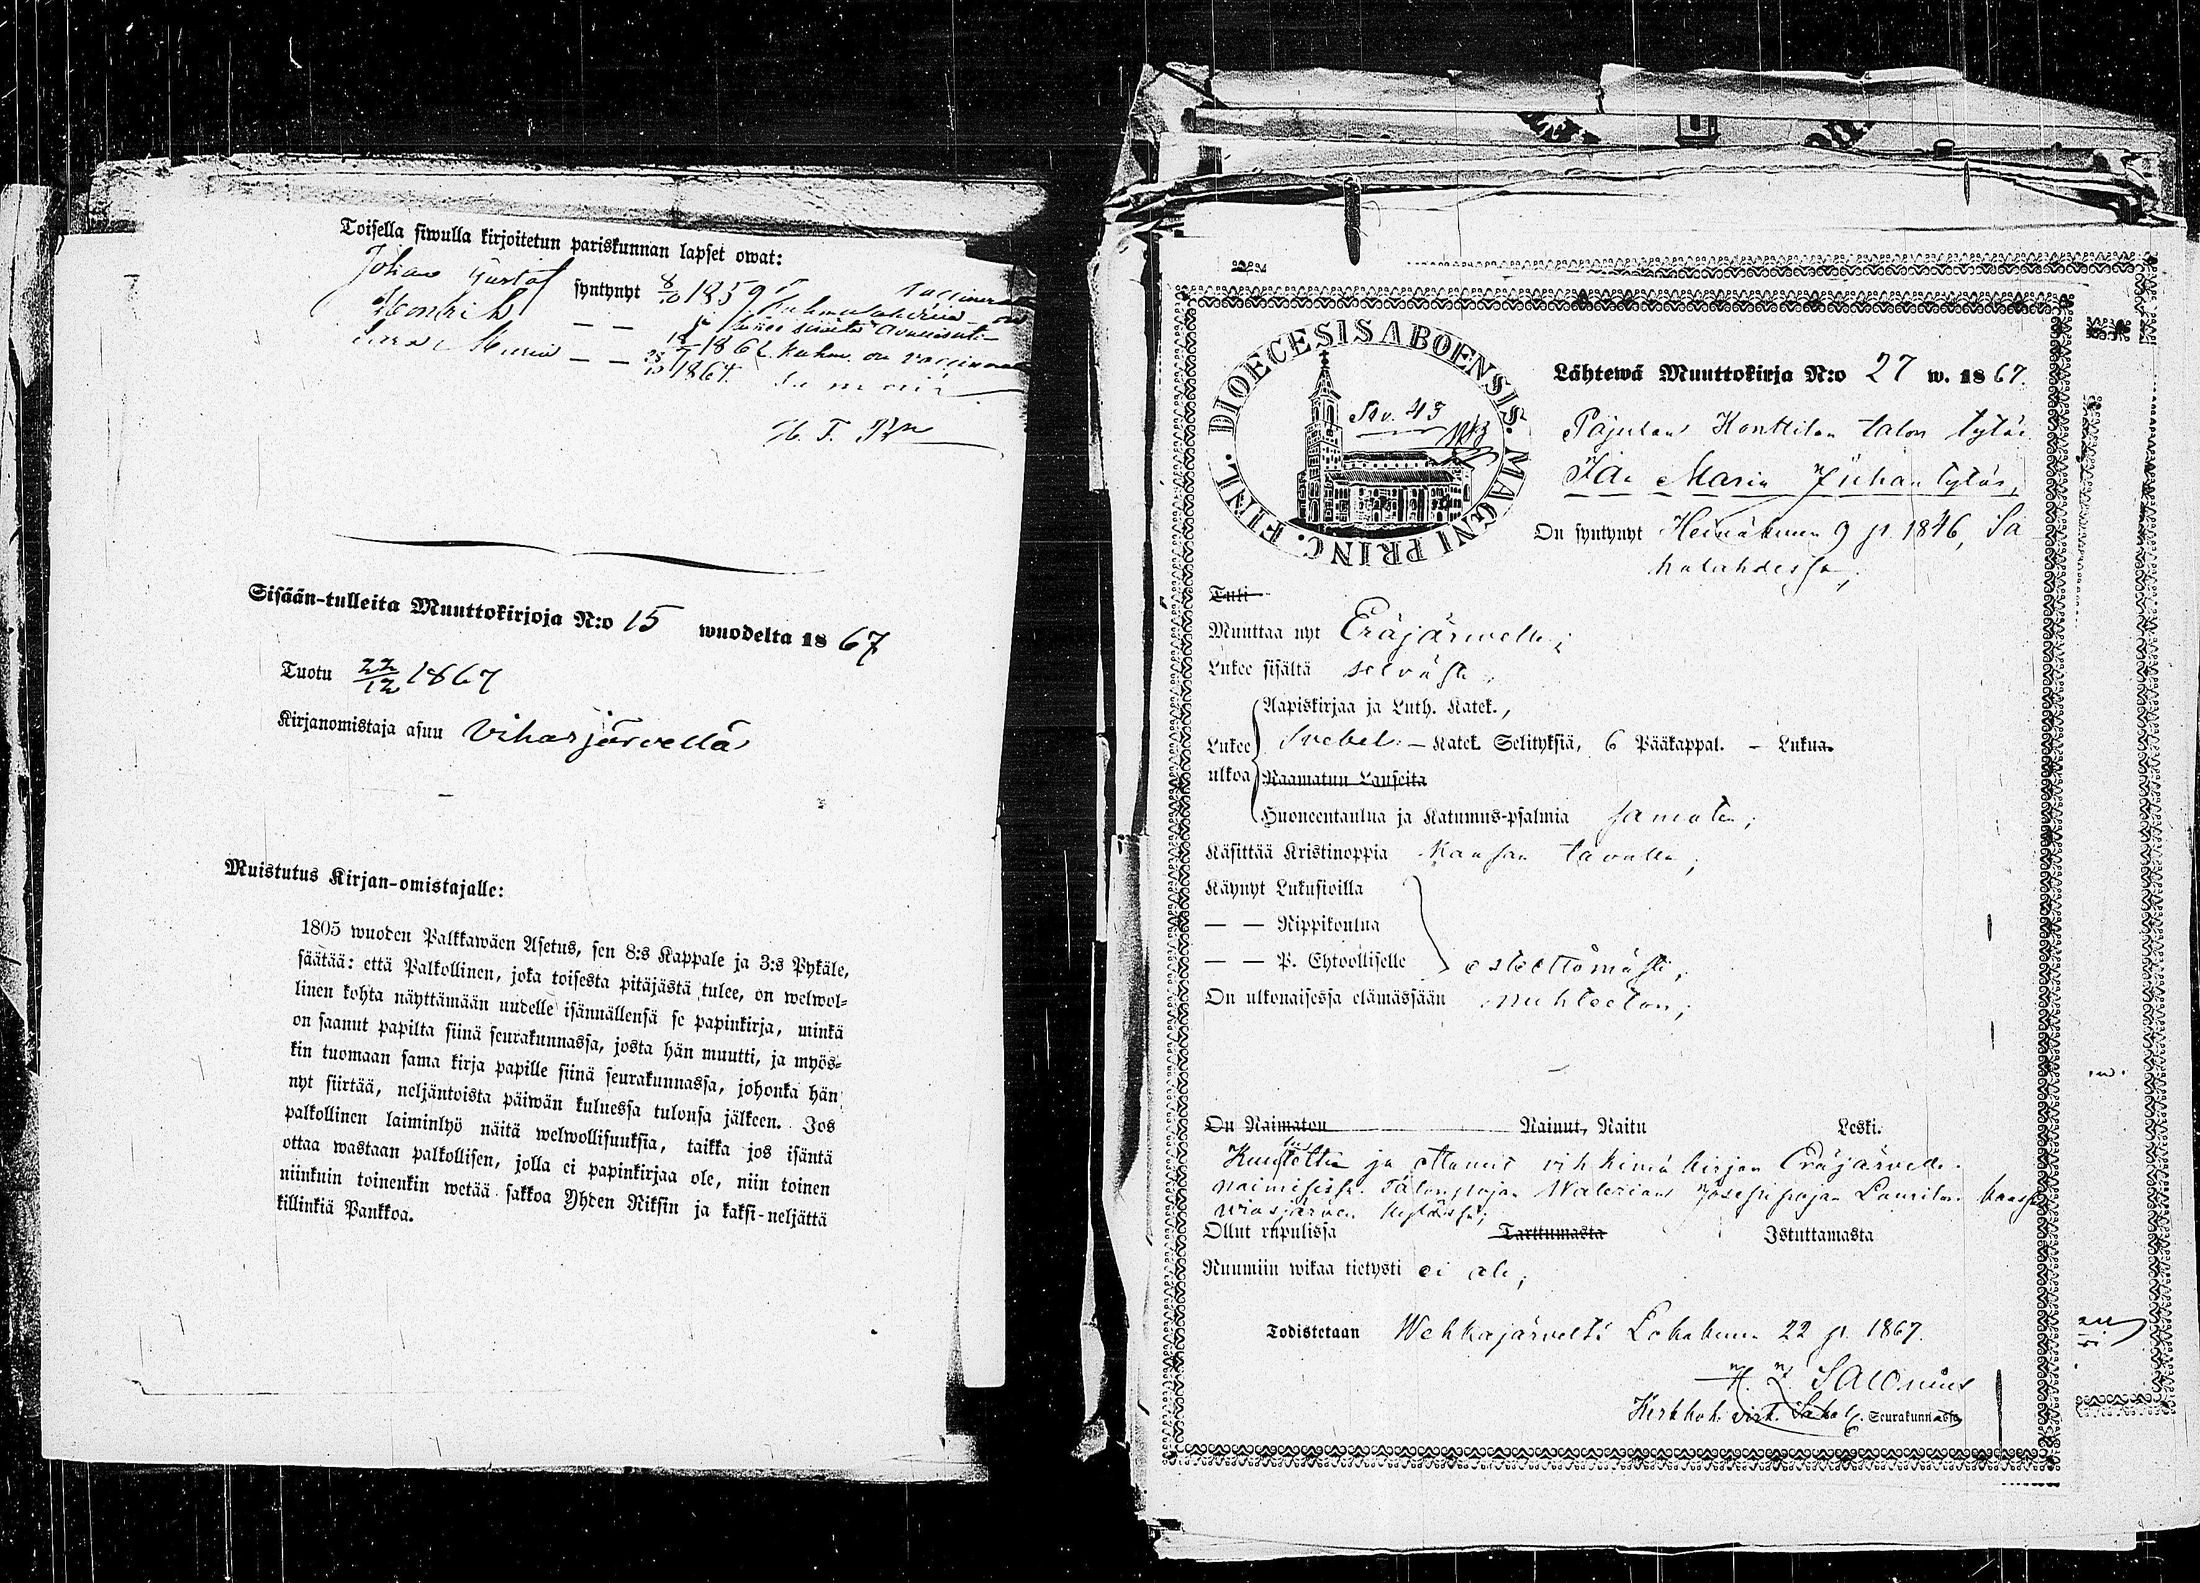 Toisella siwulla kirjoitetun pariskunnan lapset owat:
Johan Gustaf syntynyt 8/10 1859
Henrik — — 18/7 1862 Kuhm. on
Maria — — 1864
H. T.
Sisään-tulleita Muuttokirjoja N:o 15 wuodelta 1867
Tuotu 22/12 1867
Kirjanomistaja asuu Vihasjärvellä
Muistutus Kirjan-omistajalle:
1805 wuoden Palkkawäen Asetus, sen 8:s Kappale ja 3:s Pykäle,
säätää: että Palkollinen, joka toisesta pitäjästä tulee, on welwol-
linen kohta näyttämään uudelle isännällensä se papinkirja, minkä
on saanut papilta siinä seurakunnassa, josta hän muutti, ja myös-
kin tuomaan sama kirja papille siinä seurakunnassa, johonka hän
nyt siirtää, neljäntoista päiwän kuluessa tulonsa jälkeen. Jos
palkollinen laiminlyö näitä welwollisuuksia, taikka jos isäntä
ottaa wastaan palkollisen, jolla ei papinkirjaa ole, niin toinen
niinkuin toinenkin wetää sakkoa Yhden Riksin ja kaksi-neljättä
killinkiä Pankkoa.
DIOECESIS ABOENSIS. MAGNI PRINC. FINL.
Siv. 43
Lähtewä Muuttokirja N:o 27 w. 1867.
Pajulan Konttilan talon tytär
Ida Maria Juhan tytär,
On syntynyt Heinäkuun 9 p. 1846, Sa
halahdessa;
Tuli
Muuttaa nyt Eräjärwelle;
Lukee sisältä selvästi;
Lukee ulkoa
Aapiskirjaa ja Luth. Katek.,
Svebel. – Katek. Selityksiä, 6 Pääkappal. – Lukua.
Raamatun Lauseita
Huoneentaulua ja Katumus-psalmia samaten;
Käsittää Kristinoppia Kansan tavalla;
Käynyt Lukusioilla
— — Rippikoulua
— — P. Ehtoolliselle esteettömästi;
On ulkonaisessa elämässään nuhteeton;
On Naimaton Nainut, Naitu Leski.
Kuulutettu ja ottanut vihkimä kirjan Eräjärvelle
naimisissa Talonpojan Walerian Josefinpojan Laurilan kanssa
Wiasjärven kylässä;
Ollut rupulissa Tarttumasta Istuttamasta
Ruumiin wikaa tietysti ei ole;
Todistetaan Wehkajärveltä Lokakuun 22 p. 1867.
Salonius
Kirkkoh. virk. Sahal. Seurakunnassa